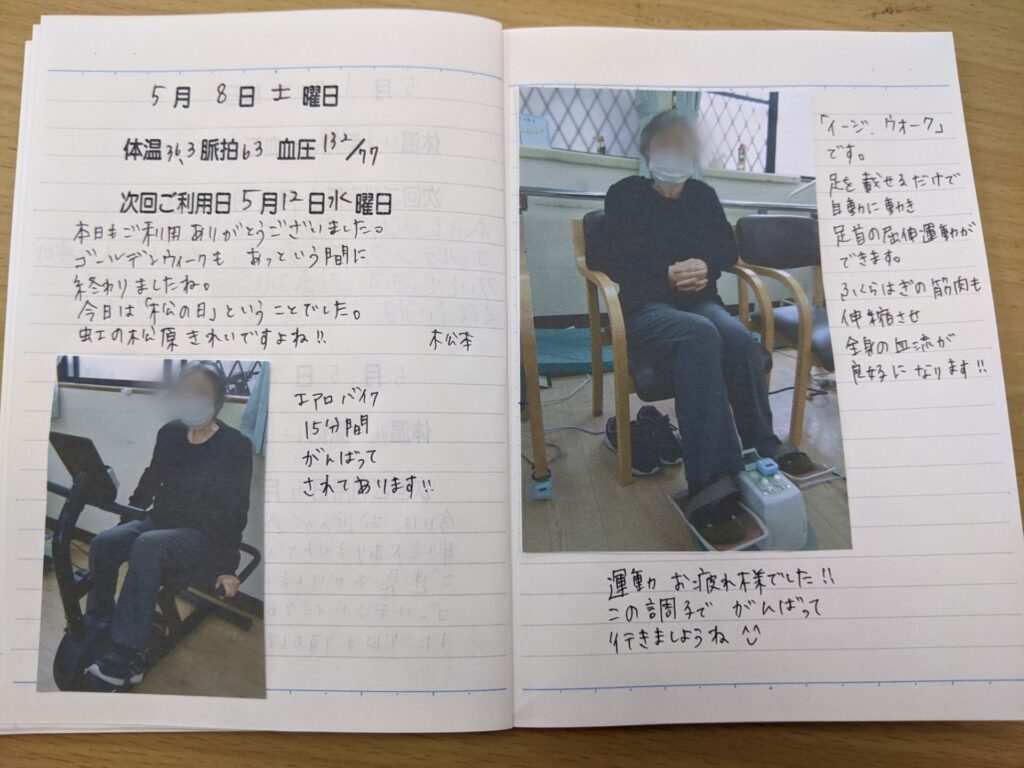 5月 8日 土 曜日
体温36.3 脈拍63 血圧132/77
次回ご利用日5月12日水曜日
本日もご利用ありがとうございました。
ゴールデンウィークも あっという間に
終わりましたね。
今日は「松の日」ということでした。
虹の松原きれいですよね!! 松本
エアロバイク
15分間
がんばって
されてあります!!
「イージ.ウオーク」
です。
足を載せるだけで
自動に動き
足首の屈伸運動が
できます。
ふくらはぎの筋肉も
伸縮させ
全身の血流が
良好になります!!
運動 お疲れ様でした!!
この調子で がんばって
行きましょうね